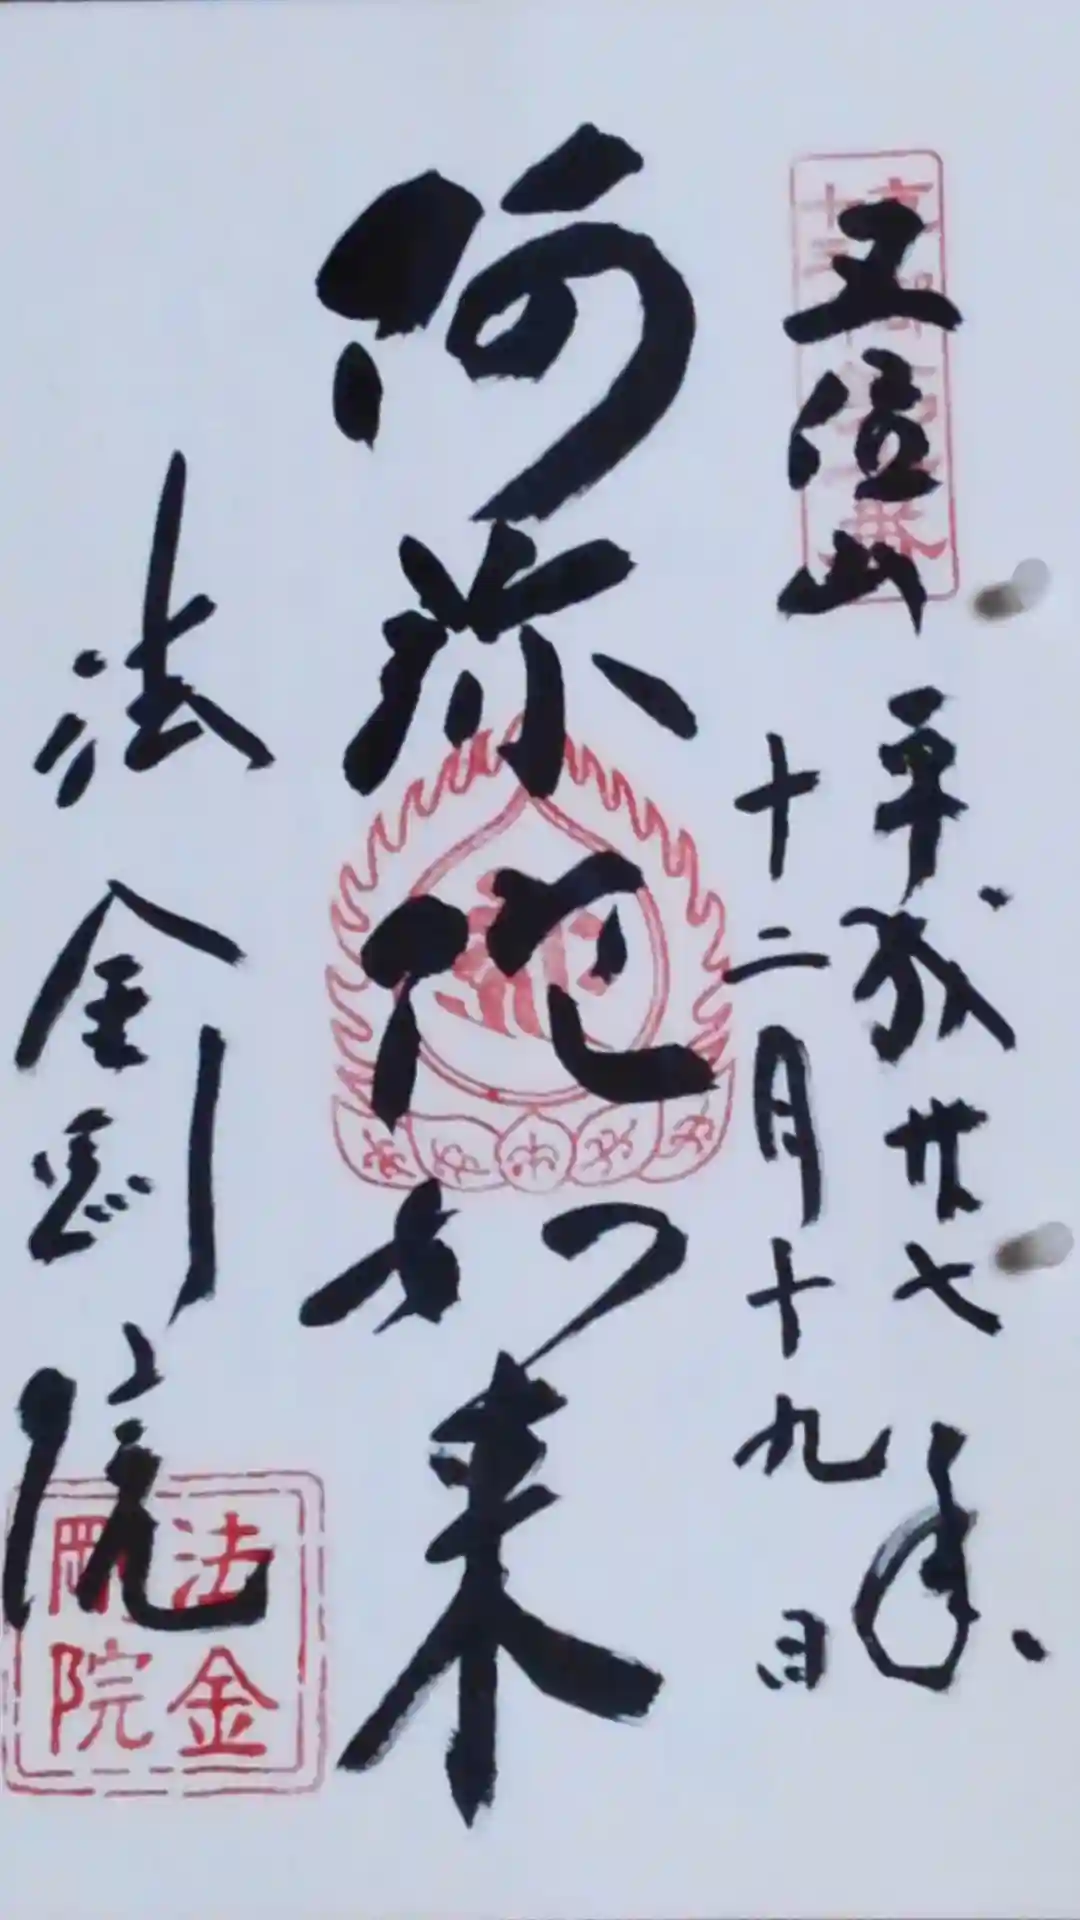 五位山
平成廿七年
十二月十九日
阿弥陀如来
法金剛院
法金
剛院